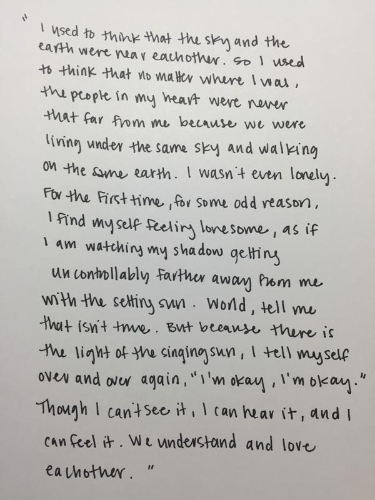 "
I used to think that the sky and the
earth were near eachother. So I used
to think that no matter where I was,
the people in my heart were never
that far from me because we were
living under the same sky and walking
on the same earth. I wasn't even lonely.
For the first time, for some odd reason,
I find myself feeling lonesome, as if
I am watching my shadow getting
uncontrollably farther away from me
with the setting sun. World, tell me
that isn't true. But because there is
the light of the singing sun, I tell myself
over and over again, "I'm okay, I'm okay."
Though I can't see it, I can hear it, and I
can feel it. We understand and love
eachother. "